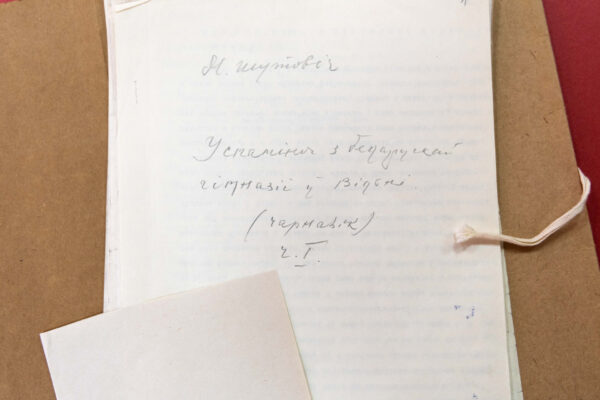 М. Шутовіч
Успаміны з беларускай
гімназіі ў Вільні.
(чарнавік)
ч. I.